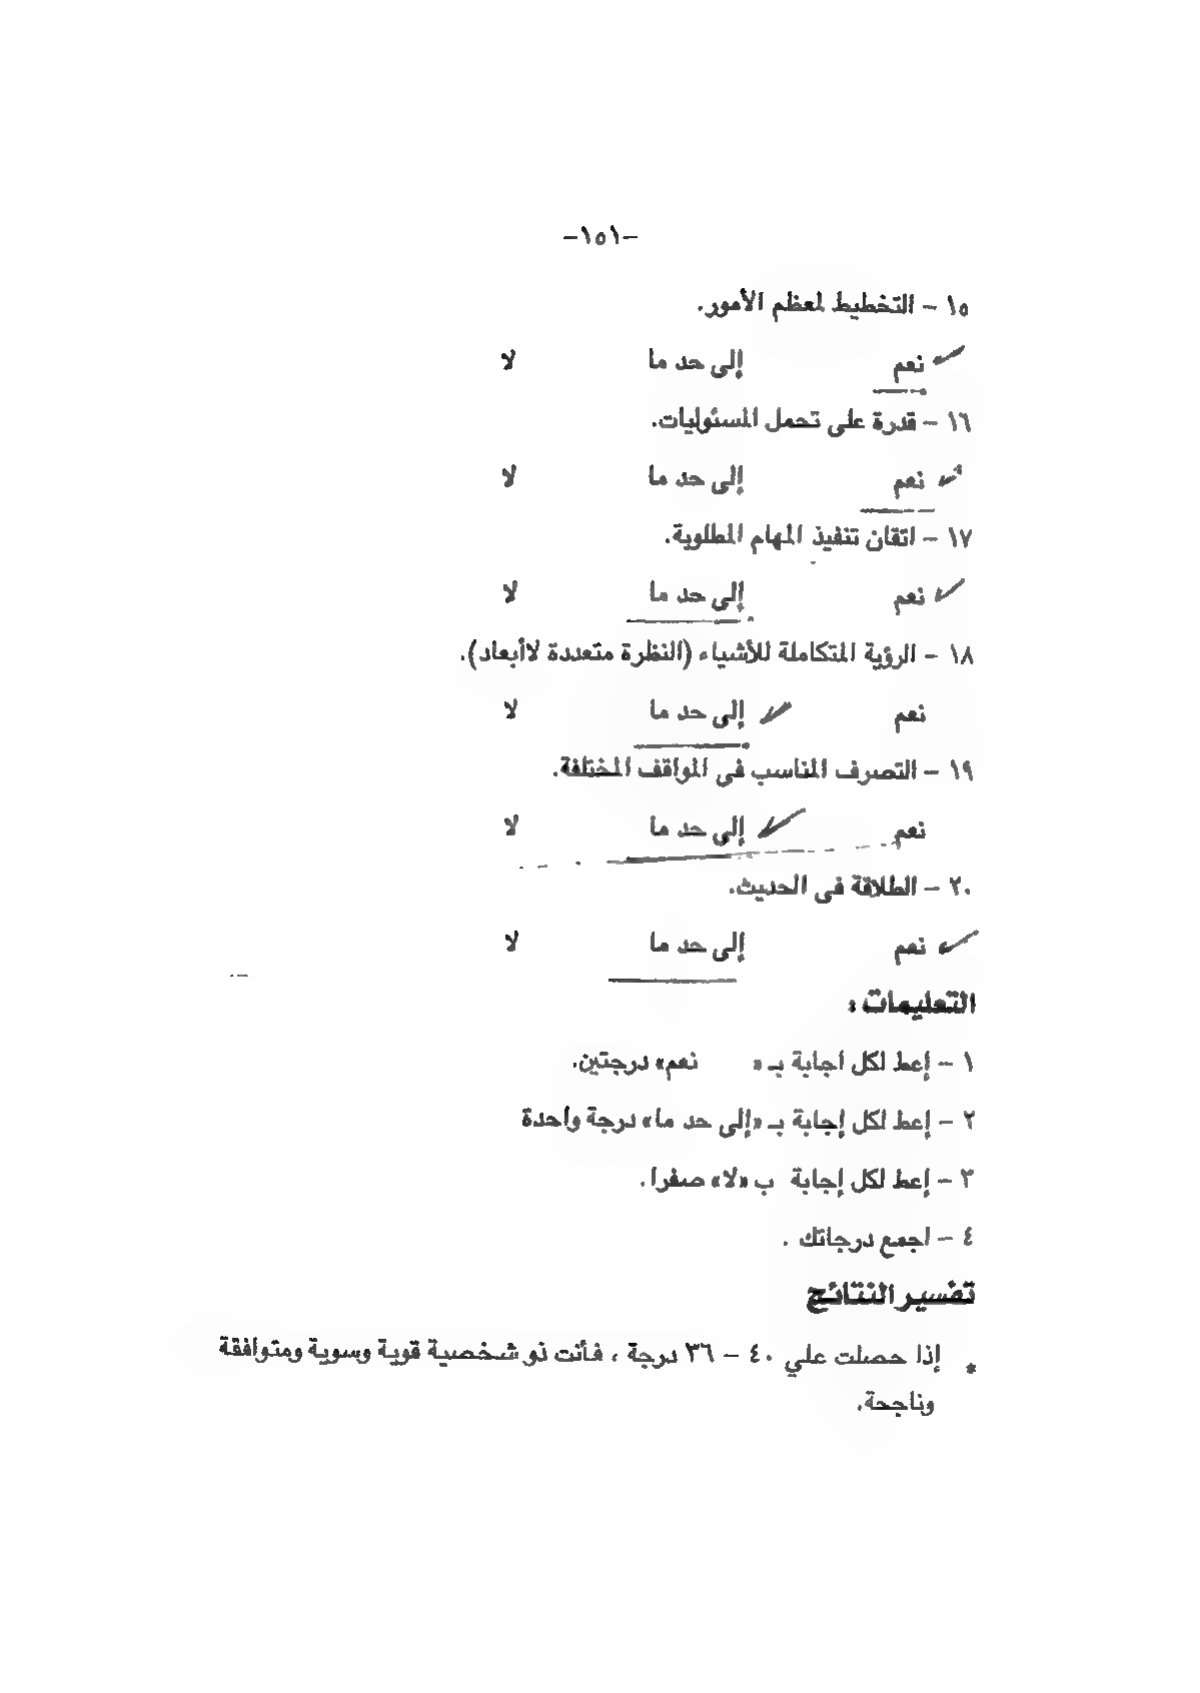 -١٥١-
١٥ - التخطيط لمعظم الأمور.
نعم إلى حد ما لا
١٦ - قدرة على تحمل المسئوليات.
نعم إلى حد ما لا
١٧ - اتقان تنفيذ المهام المطلوبة.
نعم إلى حد ما لا
١٨ - الرؤية المتكاملة للأشياء (النظرة متعددة لاأبعاد).
نعم إلى حد ما لا
١٩ - التصرف المناسب فى المواقف المختلفة.
نعم إلى حد ما لا
٢٠ - الطلاقة فى الحديث.
نعم إلى حد ما لا
التعليمات :
١ - إعط لكل اجابة بـ « نعم» درجتين.
٢ - إعط لكل إجابة بـ «إلى حد ما» درجة واحدة
٣ - إعط لكل إجابة ب «لا» صفرا .
٤ - اجمع درجاتك .
تفسير النتائج
* إذا حصلت علي ٤٠ - ٣٦ درجة ، فأنت ذو شخصية قوية وسوية ومتوافقة
وناجحة.